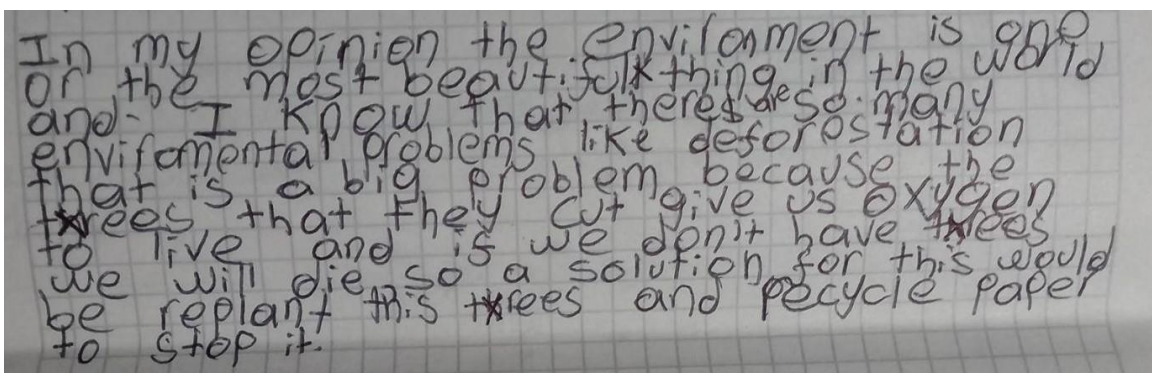 In my opinion the environment is one
or the most beautiful thing in the world
and I know that theres are so many
enviromental problems like deforestation
that is a big problem because the
trees that they cut give us oxygen
to live and is we don't have trees
we will die so a solution for this would
be replant this trees and recycle paper
to stop it.